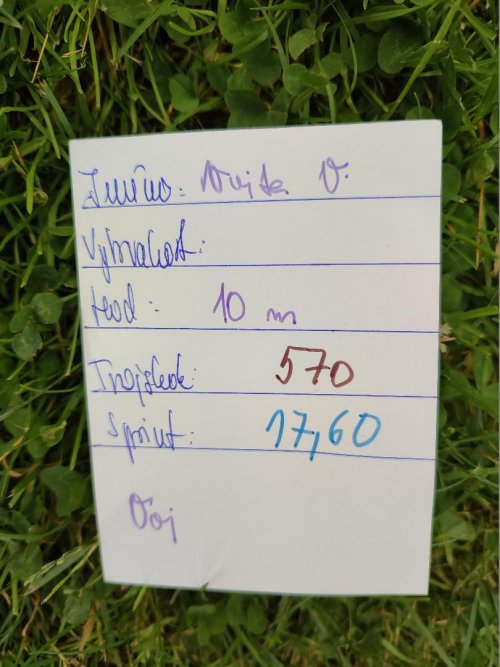 Jméno: Anita V.
Vytrvalost:
Hod: 10 m
Trojskok: 570
Sprint: 17,60